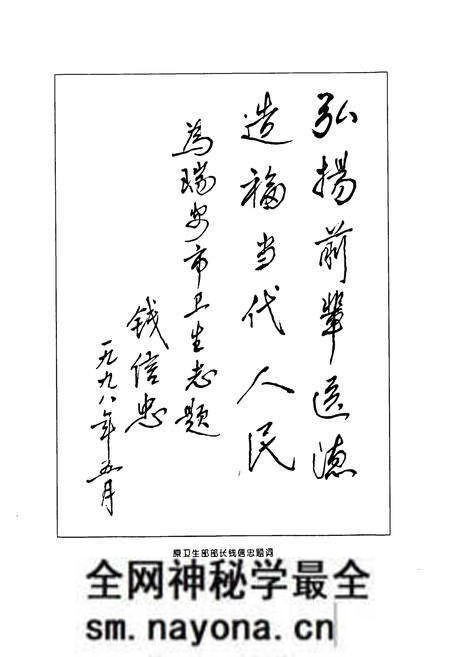 弘揚前輩医德
造福当代人民
為瑞安市卫生志题
钱信忠
一九九八年五月
原卫生部部长钱信忠题词
全网神秘学最全
sm.nayona.cn